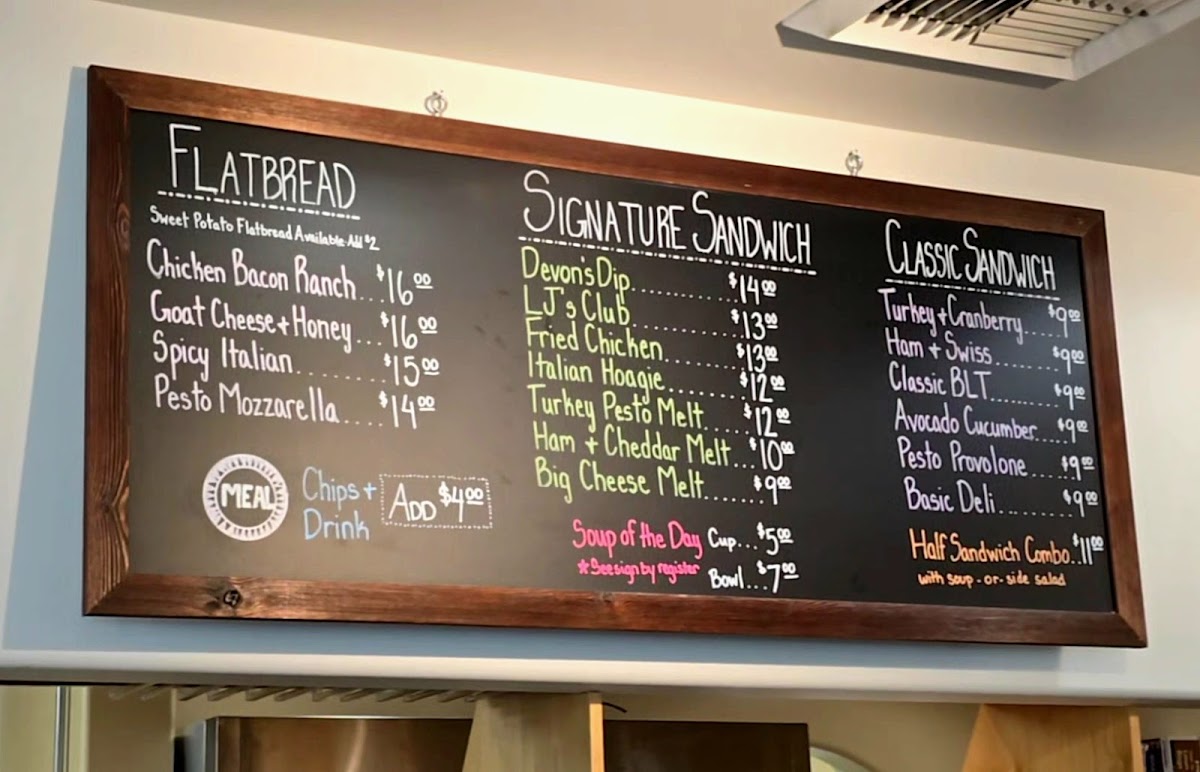 FLATBREAD
Sweet Potato Flatbread Available-Add $2
Chicken Bacon Ranch...$16.00
Goat Cheese + Honey....$16.00
Spicy Italian.........$15.00
Pesto Mozzarella.....$14.00
MEAL
Chips +
Drink
ADD $4.00
SIGNATURE SANDWICH
Devon's Dip............$14.00
LJ's Club............$13.00
Fried Chicken.........$13.00
Italian Hoagie.........$12.00
Turkey Pesto Melt.....$12.00
Ham + Cheddar Melt...$10.00
Big Cheese Melt.......$9.00
Soup of the Day Cup...$5.00
*See sign by register Bowl...$7.00
CLASSIC SANDWICH
Turkey + Cranberry...$9.00
Ham + Swiss........$9.00
Classic BLT.........$9.00
Avocado Cucumber....$9.00
Pesto Provolone....$9.00
Basic Deli.........$9.00
Half Sandwich Combo..$11.00
with soup -or- side salad